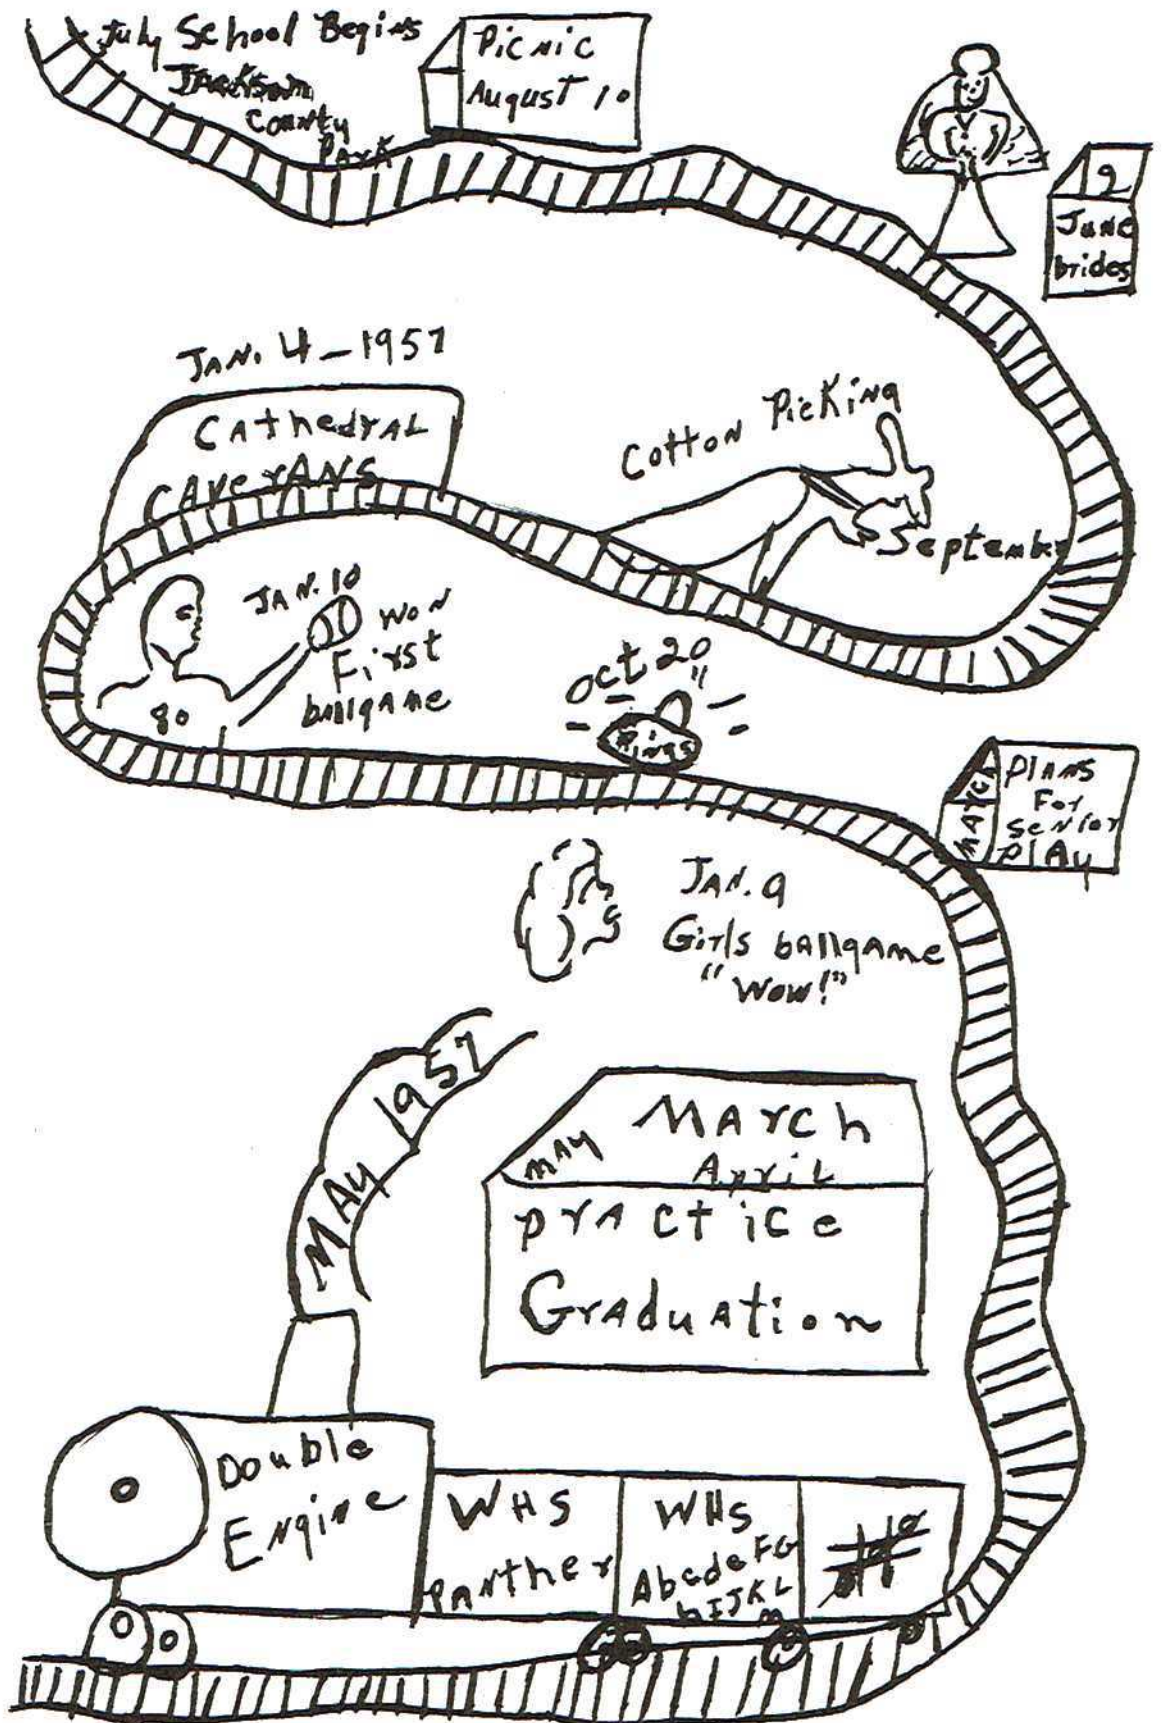 July School Begins
Jackson
County
Park
Picnic
August 10
2
June
brides
JAN. 4 - 1957
Cathedral
CAverANS
Cotton Picking
September
JAN. 10
won
First
ballgame
80
Oct 20
Rings
March
Plans
For
Senior
Play
JAN. 9
Girls ballgame
"Wow!"
MAy 1957
MAy
MArch
April
PrActice
GrAduation
Double
Engine
WHS
Panther
WHS
AbcdeFG
hIJKL
m